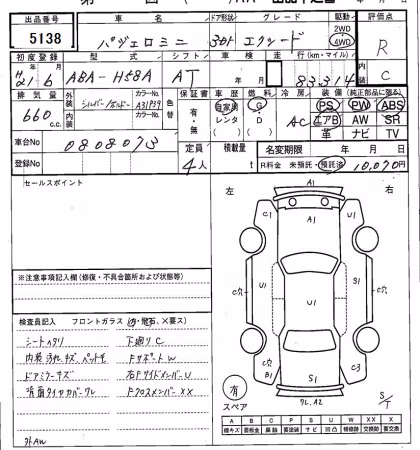 出品番号 車名 ドア形状 グレード 駆動 評価点
5138 パジェロミニ 3ドア エクシード 2WD 4WD R
初度登録 型式 シフト 車検 走行(km・マイル) 内装
H21年6月 ABA-H58A AT 83314 C
排気量 外装 シルバー カラーNo. A31P39 色替 保証書 車歴 燃料 冷房 装備(純正部品に限る)
660 c.c. 内装 カラーNo. 有・無 自家用 レンタ G・D AC PS PW ABS
エアB AW SR
革 ナビ TV
車台No 0808073 定員 4人 積載量 t 名変期限 年 月 日
登録No R料金 未預託・預託済 10,070円
セールスポイント
左 右
A1
C1 A1 U1
C穴 U1 U1 C穴
C穴 B1 S1 C3
※注意事項記入欄(修復・不具合箇所および状態等)
検査員記入 フロントガラス(キズ・飛石、×要ス)
シートヘタリ 下廻りC
ドアミラーキズ 右FサイドメンバーU
背面タイヤカバーワレ FクロスメンバーXX
外AW
有
スペア
ワレ.A2
S/T
A B C P S U W X XX